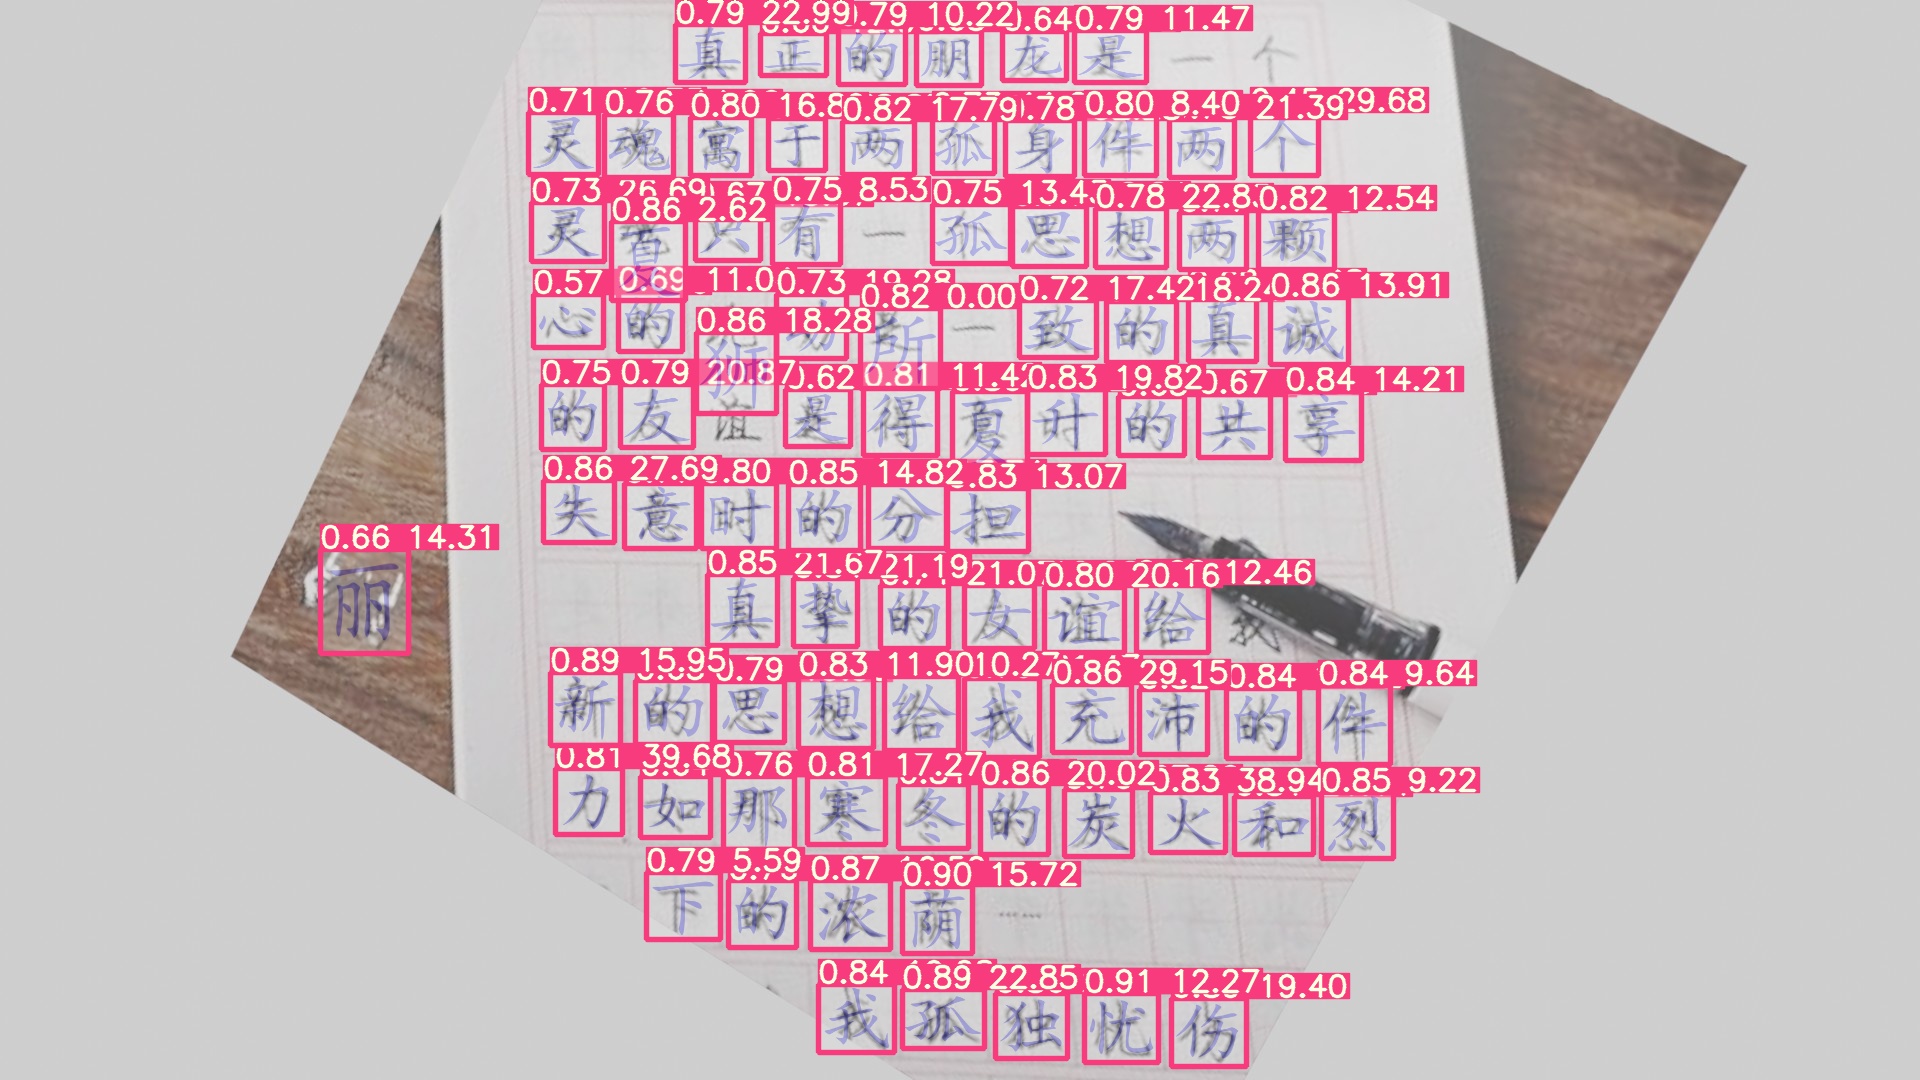 0.79 22.99 0.79 10.22 0.64 0.79 11.47
真正的朋龙是一个
0.71 0.76 0.80 16.8 0.82 17.79 0.78 0.80 8.40 21.39 29.68
灵魂寓于两孤身件两个
0.73 26.69 0.67 0.75 8.53 0.75 13.4 0.78 22.8 0.82 12.54
0.86 2.62
灵夏只有一孤思想两颗
0.57 0.69 11.0 0.73 19.28 0.72 17.42 18.2 0.86 13.91
0.82 0.00
0.86 18.28
心的狮动所一致的真诚
0.75 0.79 10.87 0.62 0.81 11.42 0.83 19.82 0.67 0.84 14.21
的友谊是得夏时的共享
0.86 27.69 0.80 0.85 14.82 0.83 13.07
失意时的分担
0.66 14.31
丽
0.85 21.67 21.19 21.0 0.80 20.16 12.46
真挚的女谊给我
0.89 15.95 0.79 0.83 11.90 10.27 0.86 29.15 0.84 0.84 9.64
新的思想给我充沛的件
0.81 39.68 0.76 0.81 17.27 0.86 20.02 0.83 38.94 0.85 9.22
力如那寒冬的炭火和烈
0.79 5.59 0.87 0.90 15.72
下的浓荫……
0.84 0.89 22.85 0.91 12.27 19.40
我孤独忧伤